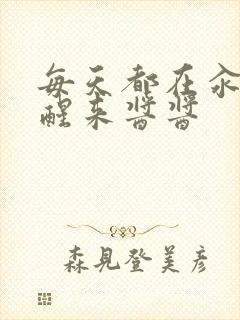 每天都在汆
醒来酱酱
森見登美彦